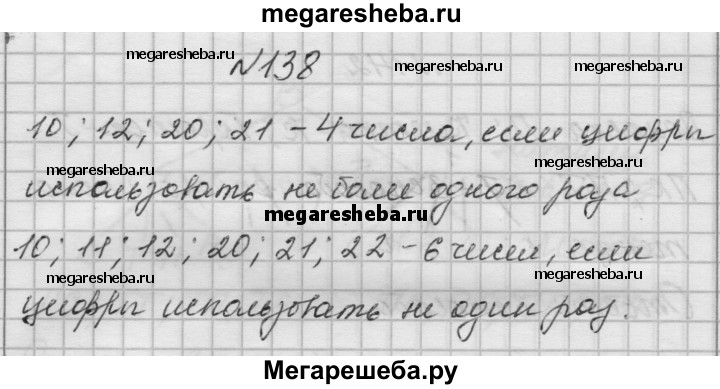 megaresheba.ru
megaresheba.ru
№138
megaresheba.ru
megaresheba.ru
10; 12; 20; 21 – 4 числа, если цифры
megaresheba.ru
megaresheba.ru
использовать не более одного раза
megaresheba.ru
10; 11; 12; 20; 21; 22 – 6 чисел, если
megaresheba.ru
megaresheba.ru
цифры использовать не один раз.
Мегарешеба.ру